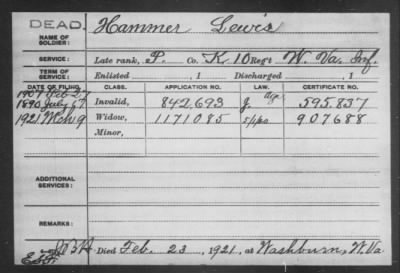 DEAD.
NAME OF SOLDIER: Hammer Lewis
SERVICE: Late rank, P. Co. K, 10 Reg't W. Va. Inf.
TERM OF SERVICE: Enlisted , 1 Discharged , 1
DATE OF FILING. CLASS. APPLICATION NO. LAW. CERTIFICATE NO.
1907 Feb 27
1890 July 7 Invalid, 842,693 J. Age 595.837
1921 Mch 9 Widow, 1171085 5/1/20 907688
Minor,
ADDITIONAL SERVICES:
REMARKS:
Died Feb. 23, 1921, at Washburn, W. Va